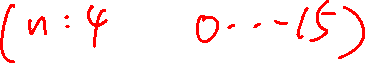 (n:4 0---15)